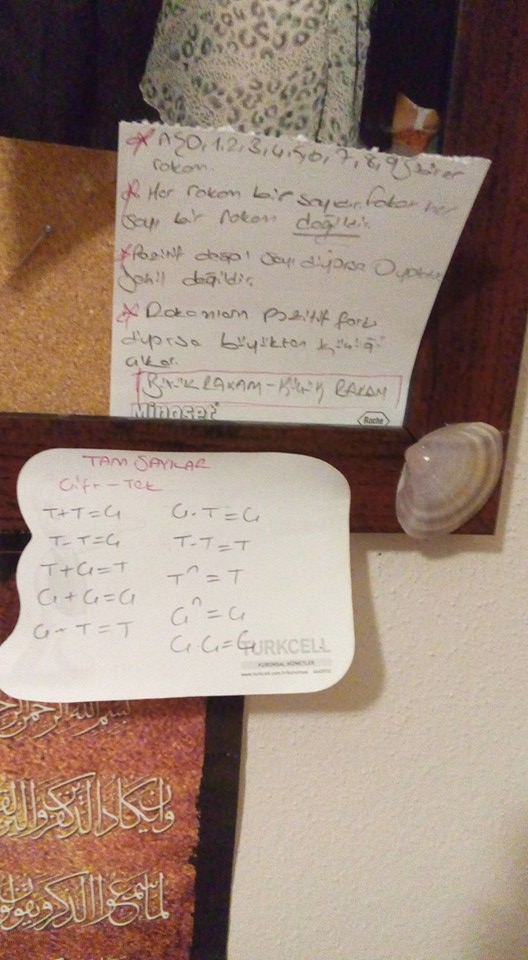 A {0, 1, 2, 3, 4, 5, 6, 7, 8, 9} birer
rakam.
* Her rakam bir sayıdır. Fakat her
sayı bir rakam değildir.
* Pozitif doğal sayı diyorsa 0
dahil değildir.
* Rakamların pozitif farkı
diyorsa büyükten küçüğü
çıkar.
BÜYÜK RAKAM - KÜÇÜK RAKAM
Minoset
Roche
TAM SAYILAR
Çift - Tek
T+T=Ç
T-T=Ç
T+Ç=T
Ç+Ç=Ç
Ç-T=T
Ç.T=Ç
T.T=T
Tⁿ=T
Çⁿ=Ç
Ç.Ç=Ç
TURKCELL
KURUMSAL HİZMETLER
بسم الله الرحمن الرحيم
وان يكاد الذين كفروا
لما سمعوا الذكر ويقولون